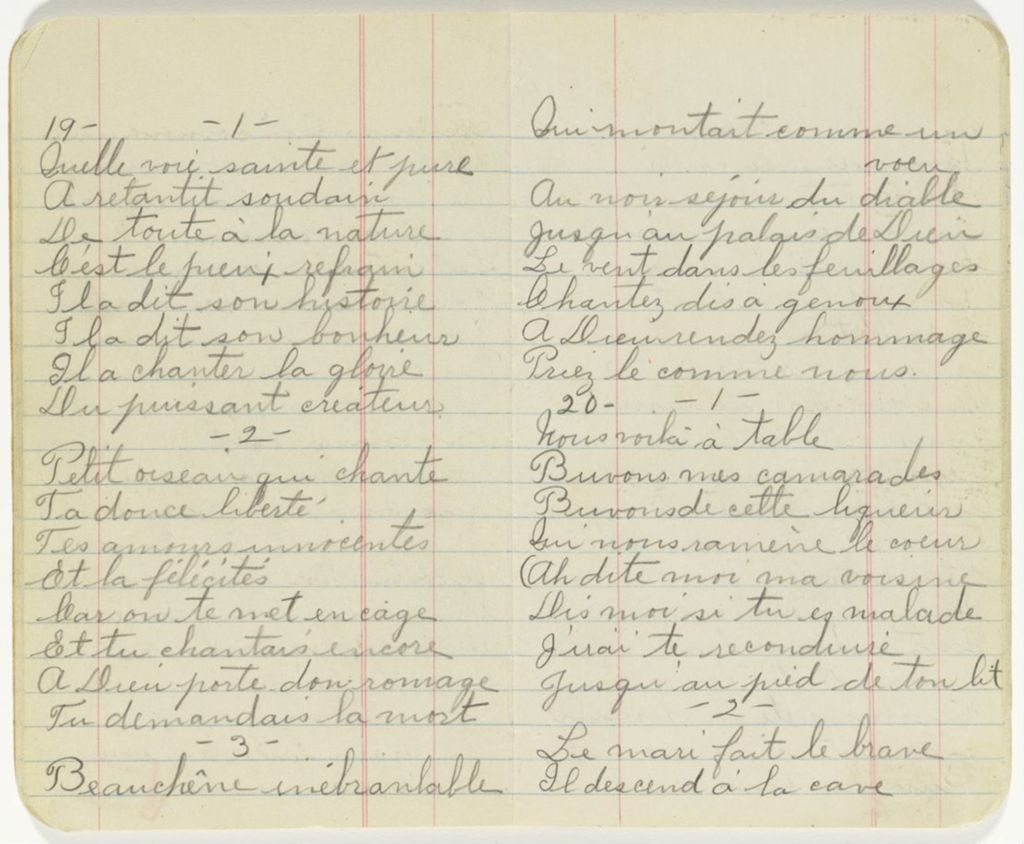 19- -1-
Quelle voie sainte et pure
A retantit soudain
De toute à la nature
C'est le pieux refrain
Il a dit son histoire
Il a dit son bonheur
Il a chanter la gloire
Du puissant créateur
-2-
Petit oiseau qui chante
Ta douce liberté
Tes amours innocentes
Et la félécités
Car on te met en cage
Et tu chantais encore
A Dieu porte don romage
Tu demandais la mort
-3-
Beauchêne inébranlable
Qui montait comme un
voeu
Au noir séjour du diable
Jusqu'au palais de Dieu
Le vent dans les feuillages
Chantez dis à genoux
A Dieu rendez hommage
Priez le comme nous.
20- -1-
Nous voilà à table
Buvons mes camarades
Buvons de cette liqueur
Qui nous ramène le coeur
(Ah dite moi ma voisine
Dis moi si tu es malade
J'irai te reconduire
Jusqu'au pied de ton lit
-2-
Le mari fait le brave
Il descend à la cave